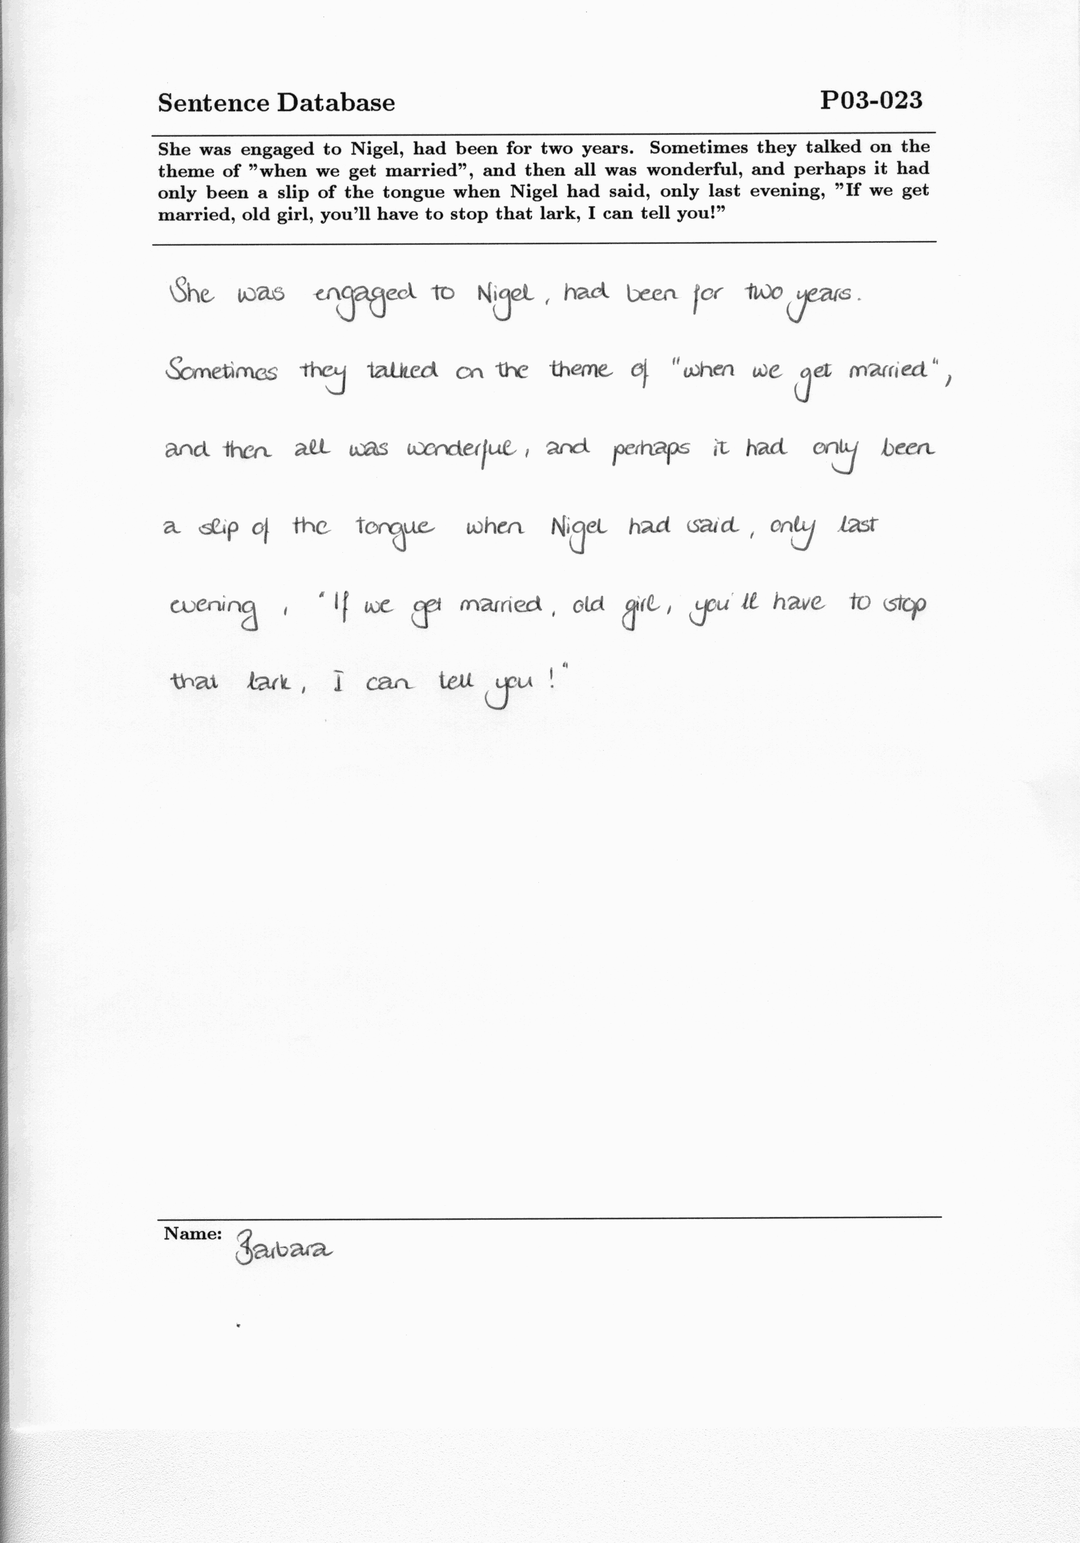 Sentence Database P03-023
She was engaged to Nigel, had been for two years. Sometimes they talked on the
theme of ”when we get married”, and then all was wonderful, and perhaps it had
only been a slip of the tongue when Nigel had said, only last evening, ”If we get
married, old girl, you’ll have to stop that lark, I can tell you!”
She was engaged to Nigel, had been for two years.
Sometimes they talked on the theme of "when we get married",
and then all was wonderful, and perhaps it had only been
a slip of the tongue when Nigel had said, only last
evening, "If we get married, old girl, you'll have to stop
that lark, I can tell you!"
Name: Barbara